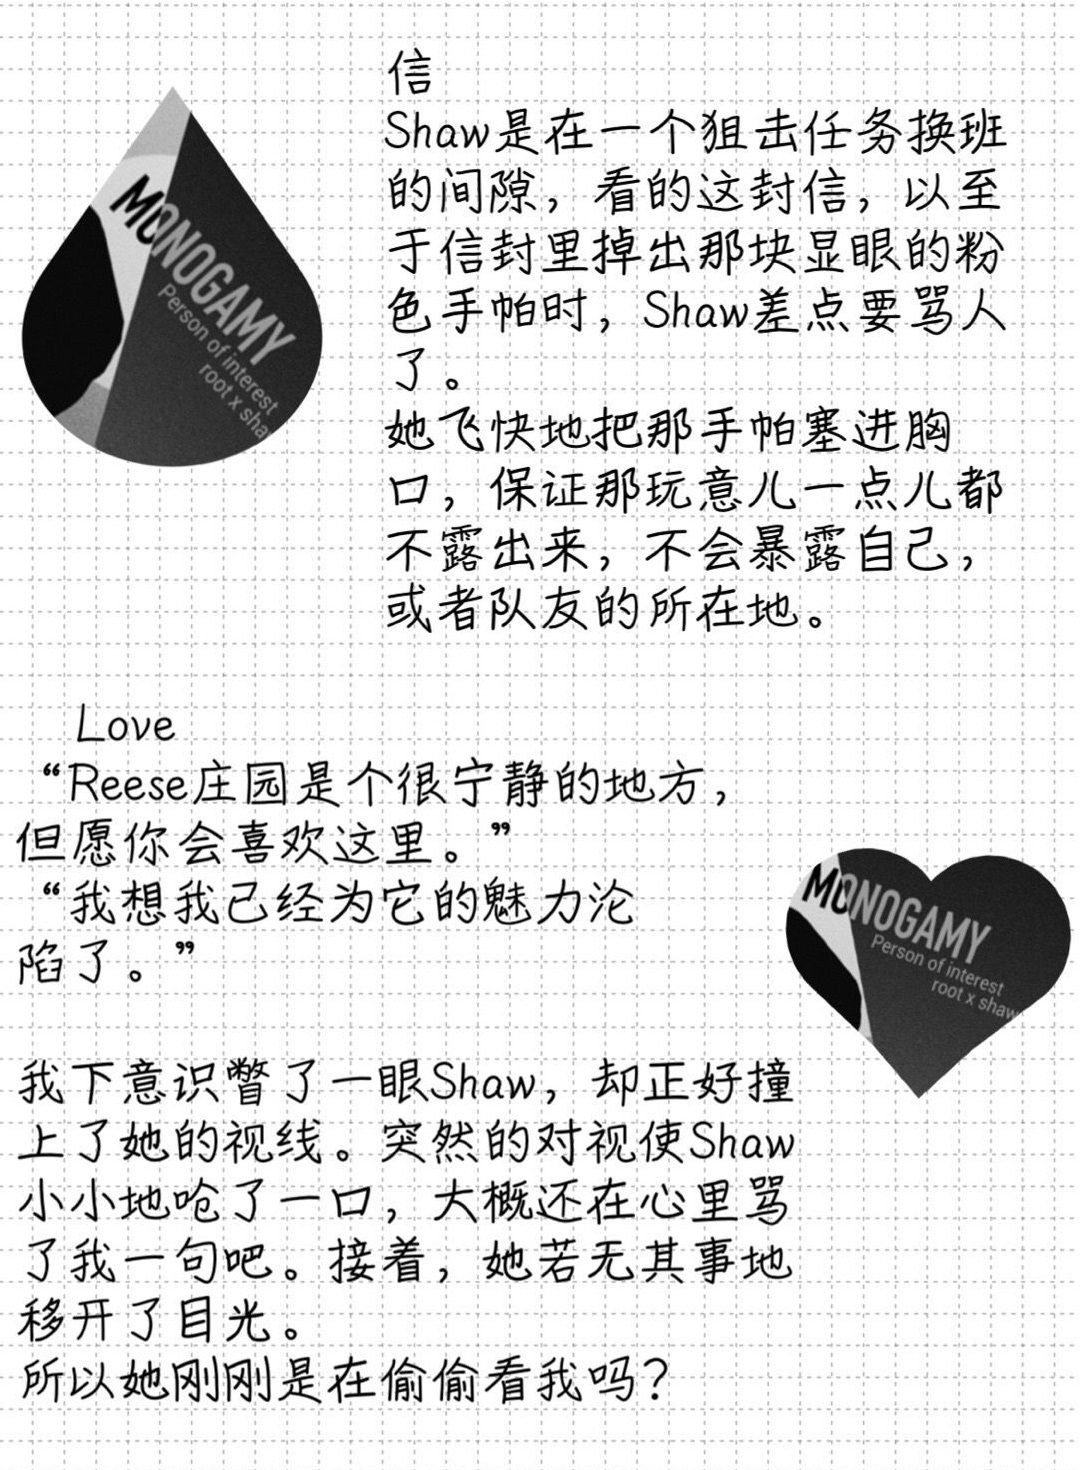 信
Shaw是在一个狙击任务换班
的间隙，看的这封信，以至
于信封里掉出那块显眼的粉
色手帕时，Shaw差点要骂人
了。
她飞快地把那手帕塞进胸
口，保证那玩意儿一点儿都
不露出来，不会暴露自己，
或者队友的所在地。
MONOGAMY
Person of interest
root x sha
Love
“Reese庄园是个很宁静的地方，
但愿你会喜欢这里。”
“我想我已经为它的魅力沦
陷了。”
MONOGAMY
Person of interest
root x shaw
我下意识瞥了一眼Shaw，却正好撞
上了她的视线。突然的对视使Shaw
小小地呛了一口，大概还在心里骂
了我一句吧。接着，她若无其事地
移开了目光。
所以她刚刚是在偷偷看我吗？